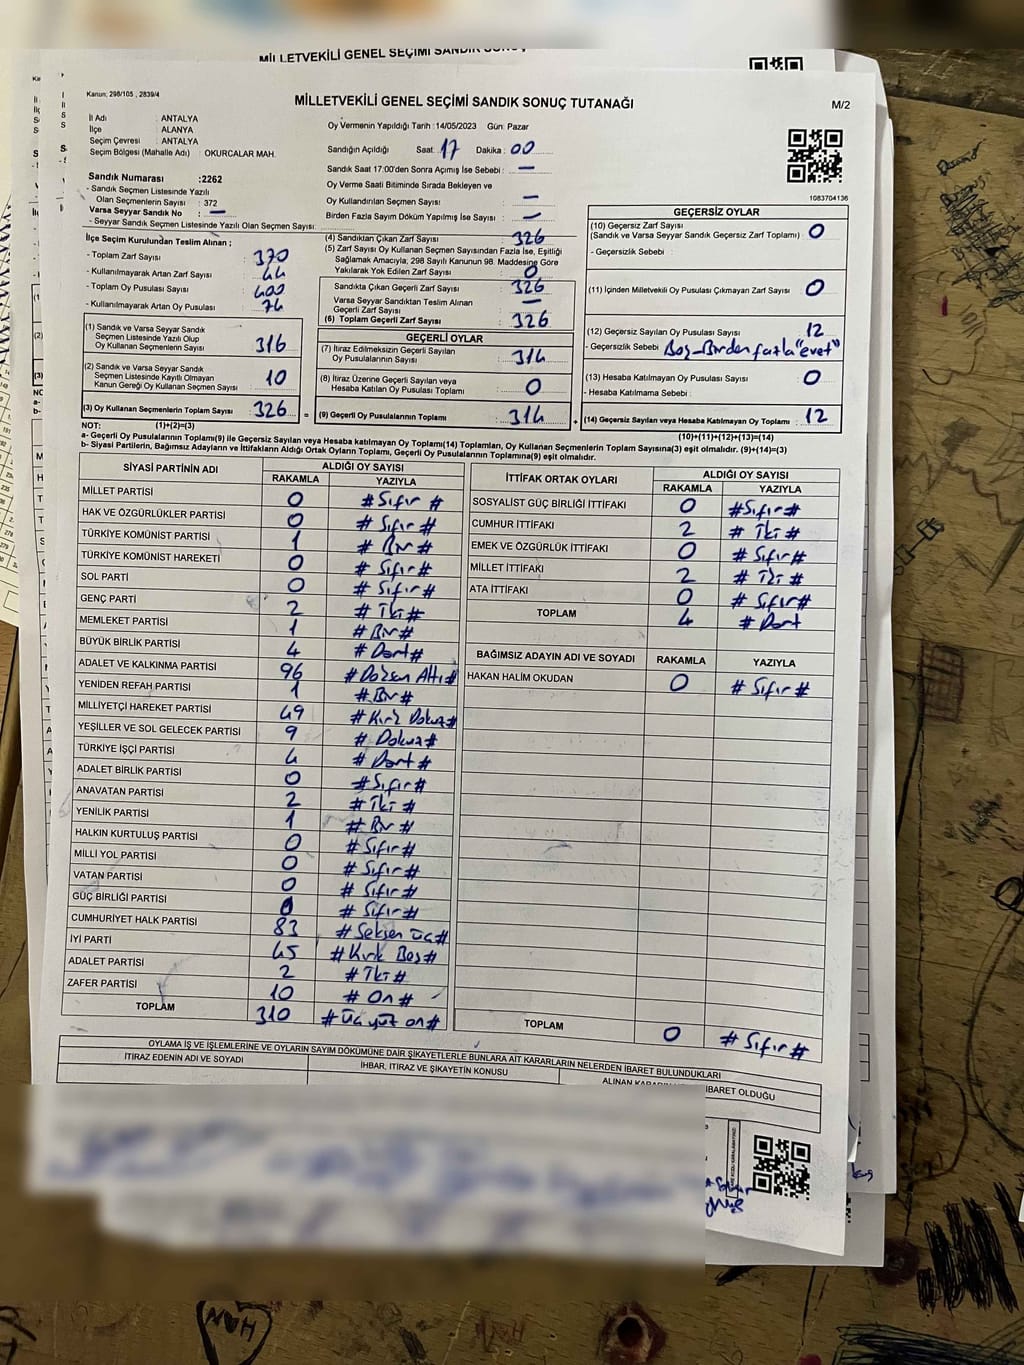 MİLLETVEKİLİ GENEL SEÇİMİ SANDIK
Kanun; 298/105 , 2839/4
MİLLETVEKİLİ GENEL SEÇİMİ SANDIK SONUÇ TUTANAĞI
M/2
İl Adı : ANTALYA
İlçe : ALANYA
Seçim Çevresi : ANTALYA
Seçim Bölgesi (Mahalle Adı) : OKURCALAR MAH.
Sandık Numarası :2262
- Sandık Seçmen Listesinde Yazılı
Olan Seçmenlerin Sayısı : 372
Varsa Seyyar Sandık No : —
- Seyyar Sandık Seçmen Listesinde Yazılı Olan Seçmen Sayısı:
Oy Vermenin Yapıldığı Tarih :14/05/2023 Gün: Pazar
Sandığın Açıldığı Saat: 17 Dakika : 00
Sandık Saat 17:00'den Sonra Açılmış İse Sebebi : —
Oy Verme Saati Bitiminde Sırada Bekleyen ve
Oy Kullandırılan Seçmen Sayısı : —
Birden Fazla Sayım Döküm Yapılmış İse Sayısı : —
1083704136
İlçe Seçim Kurulundan Teslim Alınan ;
- Toplam Zarf Sayısı : 370
- Kullanılmayarak Artan Zarf Sayısı : 44
- Toplam Oy Pusulası Sayısı : 400
- Kullanılmayarak Artan Oy Pusulası : 74
(1) Sandık ve Varsa Seyyar Sandık
Seçmen Listesinde Yazılı Olup
Oy Kullanan Seçmenlerin Sayısı : 316
(2) Sandık ve Varsa Seyyar Sandık
Seçmen Listesinde Kayıtlı Olmayan
Kanun Gereği Oy Kullanan Seçmen Sayısı : 10
(3) Oy Kullanan Seçmenlerin Toplam Sayısı : 326
(4) Sandıktan Çıkan Zarf Sayısı : 326
(5) Zarf Sayısı Oy Kullanan Seçmen Sayısından Fazla İse, Eşitliği
Sağlamak Amacıyla; 298 Sayılı Kanunun 98. Maddesine Göre
Yakılarak Yok Edilen Zarf Sayısı : 0
Sandıkta Çıkan Geçerli Zarf Sayısı : 326
Varsa Seyyar Sandıktan Teslim Alınan
Geçerli Zarf Sayısı : —
(6) Toplam Geçerli Zarf Sayısı : 326
GEÇERLİ OYLAR
(7) İtiraz Edilmeksizin Geçerli Sayılan
Oy Pusulalarının Sayısı : 314
(8) İtiraz Üzerine Geçerli Sayılan veya
Hesaba Katılan Oy Pusulası Toplamı : 0
= (9) Geçerli Oy Pusulalarının Toplamı : 314
GEÇERSİZ OYLAR
(10) Geçersiz Zarf Sayısı
(Sandık ve Varsa Seyyar Sandık Geçersiz Zarf Toplamı) : 0
- Geçersizlik Sebebi :
(11) İçinden Milletvekili Oy Pusulası Çıkmayan Zarf Sayısı : 0
(12) Geçersiz Sayılan Oy Pusulası Sayısı : 12
- Geçersizlik Sebebi : Boş-Birden fazla "evet"
(13) Hesaba Katılmayan Oy Pusulası Sayısı : 0
- Hesaba Katılmama Sebebi :
+ (14) Geçersiz Sayılan veya Hesaba Katılmayan Oy Toplamı : 12
NOT: (1)+(2)=(3)
(10)+(11)+(12)+(13)=(14)
a- Geçerli Oy Pusulaları Toplamı(9) ile Geçersiz Sayılan veya Hesaba katılmayan Oy Toplamı(14) Toplamları, Oy Kullanan Seçmenlerin Toplam Sayısına(3) eşit olmalıdır. (9)+(14)=(3)
b- Siyasi Partilerin, Bağımsız Adayların ve İttifakların Aldığı Ortak Oyların Toplamı, Geçerli Oy Pusulalarının Toplamına(9) eşit olmalıdır.
SİYASİ PARTİNİN ADI ALDIĞI OY SAYISI
RAKAMLA YAZIYLA
MİLLET PARTİSİ 0 #Sıfır #
HAK VE ÖZGÜRLÜKLER PARTİSİ 0 # Sıfır #
TÜRKİYE KOMÜNİST PARTİSİ 1 # Bir #
TÜRKİYE KOMÜNİST HAREKETİ 0 # Sıfır #
SOL PARTİ 0 # Sıfır #
GENÇ PARTİ 2 # İki #
MEMLEKET PARTİSİ 1 # Bir #
BÜYÜK BİRLİK PARTİSİ 4 # Dört #
ADALET VE KALKINMA PARTİSİ 96 # Doksan Altı #
YENİDEN REFAH PARTİSİ 1 # Bir #
MİLLİYETÇİ HAREKET PARTİSİ 49 # Kırk Dokuz #
YEŞİLLER VE SOL GELECEK PARTİSİ 9 # Dokuz #
TÜRKİYE İŞÇİ PARTİSİ 4 # Dört #
ADALET BİRLİK PARTİSİ 0 # Sıfır #
ANAVATAN PARTİSİ 2 # İki #
YENİLİK PARTİSİ 1 # Bir #
HALKIN KURTULUŞ PARTİSİ 0 # Sıfır #
MİLLİ YOL PARTİSİ 0 # Sıfır #
VATAN PARTİSİ 0 # Sıfır #
GÜÇ BİRLİĞİ PARTİSİ 0 # Sıfır #
CUMHURİYET HALK PARTİSİ 83 # Seksen üç #
İYİ PARTİ 45 # Kırk Beş #
ADALET PARTİSİ 2 # İki #
ZAFER PARTİSİ 10 # On #
TOPLAM 310 # üç yüz on #
İTTİFAK ORTAK OYLARI ALDIĞI OY SAYISI
RAKAMLA YAZIYLA
SOSYALİST GÜÇ BİRLİĞİ İTTİFAKI 0 #Sıfır #
CUMHUR İTTİFAKI 2 # İki #
EMEK VE ÖZGÜRLÜK İTTİFAKI 0 # Sıfır #
MİLLET İTTİFAKI 2 # İki #
ATA İTTİFAKI 0 # Sıfır #
TOPLAM 4 # Dört
BAĞIMSIZ ADAYIN ADI VE SOYADI RAKAMLA YAZIYLA
HAKAN HALİM OKUDAN 0 # Sıfır #
TOPLAM 0 # Sıfır #
OYLAMA İŞ VE İŞLEMLERİNE VE OYLARIN SAYIM DÖKÜMÜNE DAİR ŞİKAYETLERLE BUNLARA AİT KARARLARIN NELERDEN İBARET BULUNDUKLARI
İTİRAZ EDENİN ADI VE SOYADI
İHBAR, İTİRAZ VE ŞİKAYETİN KONUSU
İBARET OLDUĞU